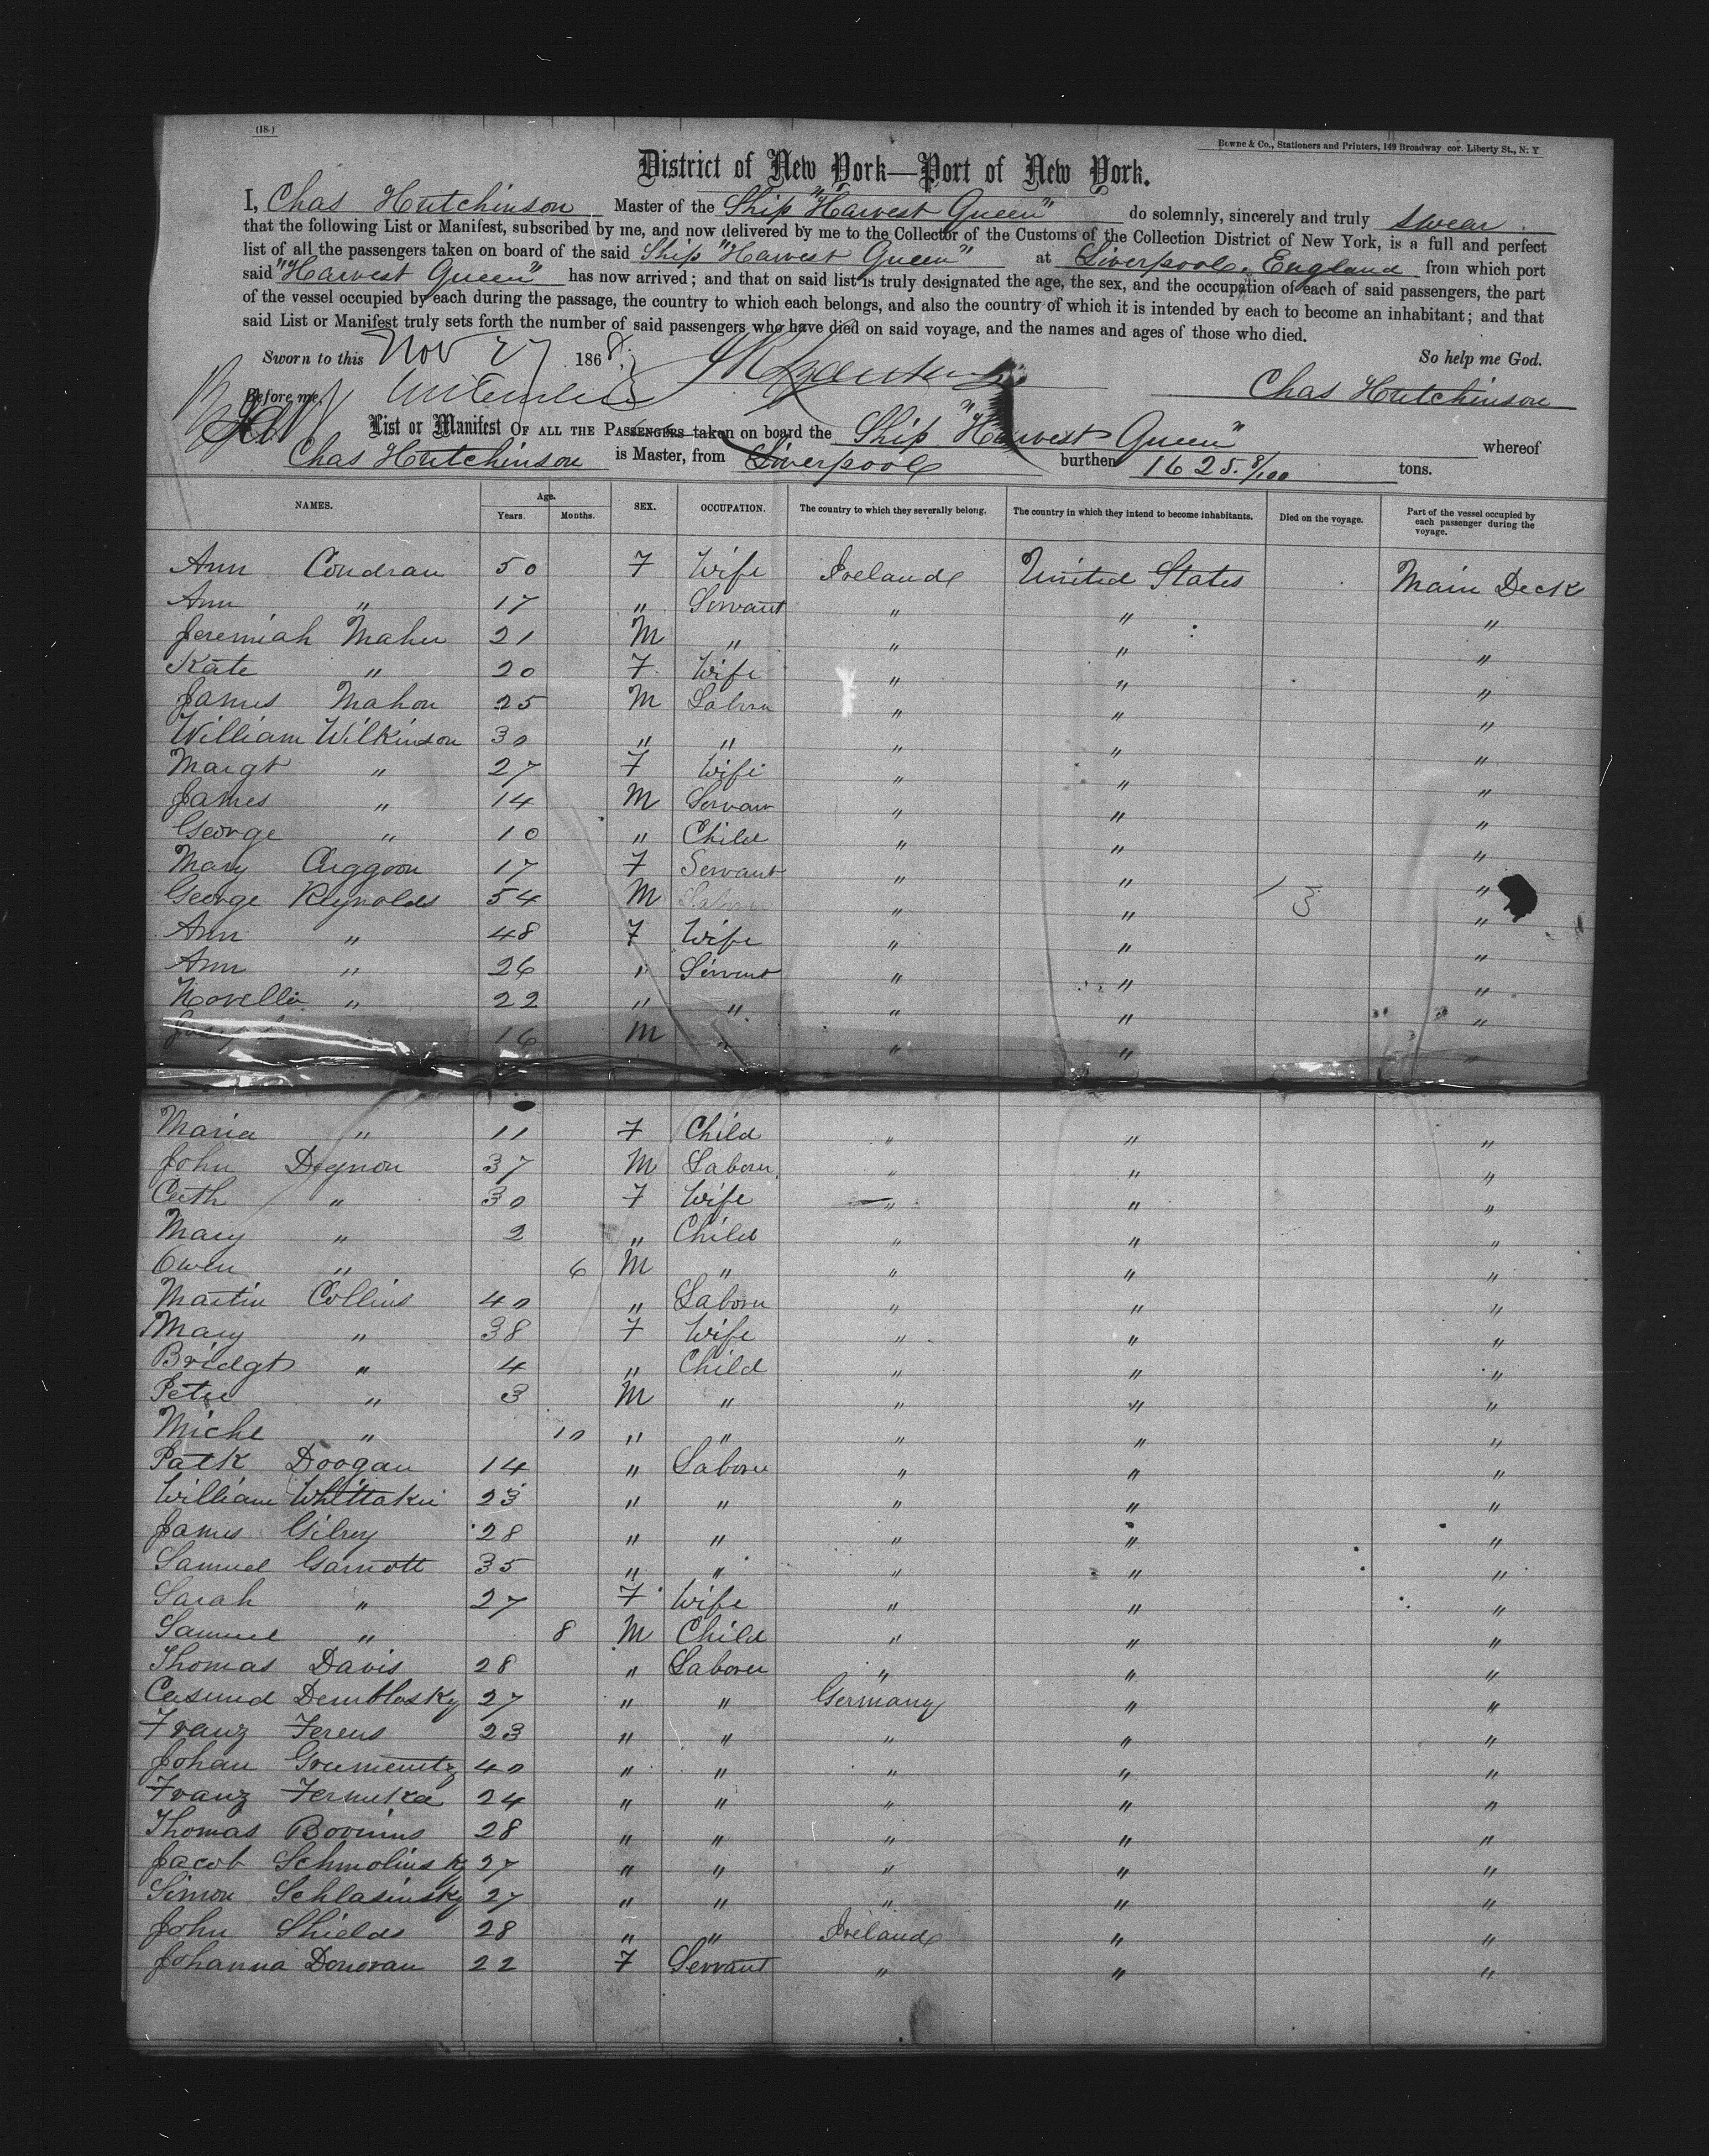 (18.)
Bowne & Co., Stationers and Printers, 149 Broadway cor. Liberty St., N. Y
District of New York—Port of New York.
I, Chas Hutchinson Master of the Ship "Harvest Queen" do solemnly, sincerely and truly swear
that the following List or Manifest, subscribed by me, and now delivered by me to the Collector of the Customs of the Collection District of New York, is a full and perfect
list of all the passengers taken on board of the said Ship "Harvest Queen" at Liverpool, England from which port
said "Harvest Queen" has now arrived; and that on said list is truly designated the age, the sex, and the occupation of each of said passengers, the part
of the vessel occupied by each during the passage, the country to which each belongs, and also the country of which it is intended by each to become an inhabitant; and that
said List or Manifest truly sets forth the number of said passengers who have died on said voyage, and the names and ages of those who died.
Sworn to this Nov 27 1868 So help me God.
Before me, Chas Hutchinson
List or Manifest OF ALL THE PASSENGERS taken on board the Ship "Harvest Queen" whereof
Chas Hutchinson is Master, from Liverpool burthen 1625. 8/100 tons.
NAMES. Age. Years. Months. SEX. OCCUPATION. The country to which they severally belong. The country in which they intend to become inhabitants. Died on the voyage. Part of the vessel occupied by each passenger during the voyage.
Ann Condran 50 F Wife Ireland United States Main Deck
Ann " 17 " Servant " " "
Jeremiah Maher 21 M " " " "
Kate " 20 F Wife " " "
James Mahon 25 M Labourer " " "
William Wilkinson 30 " " " " "
Margt " 27 F Wife " " "
James " 14 M Servant " " "
George " 10 " Child " " "
Mary 17 F Servant " " "
George Reynolds 54 M Laborer " " "
Ann " 48 F Wife " " "
Ann " 26 " Servant " " "
Novella " 22 " " " " "
16 M " " " "
Maria " 11 F Child " " "
John Degnon 37 M Laborer " " "
Cath " 30 F Wife " " "
Mary " 2 " Child " " "
Owen " 6 M " " " "
Martin Collins 40 " Laborer " " "
Mary " 38 F Wife " " "
Bridgt " 4 " Child " " "
Peter " 3 M " " " "
Michl " 10 " " " " "
Patk Doogan 14 " Laborer " " "
William Whittaker 23 " " " " "
James Gilroy 28 " " " " "
Samuel Garnott 35 " " " " "
Sarah " 27 F Wife " " "
Samuel " 8 M Child " " "
Thomas Davis 28 " Laborer " " "
Casund Demblosky 27 " " Germany " "
Franz Ferens 23 " " " " "
Johan Grumentz 40 " " " " "
Franz Fermska 24 " " " " "
Thomas Bovinus 28 " " " " "
Jacob Schmolinsky 27 " " " " "
Simon Schlasinsky 27 " " " " "
John Shields 28 " " Ireland " "
Johanna Donovan 22 F Servant " " "